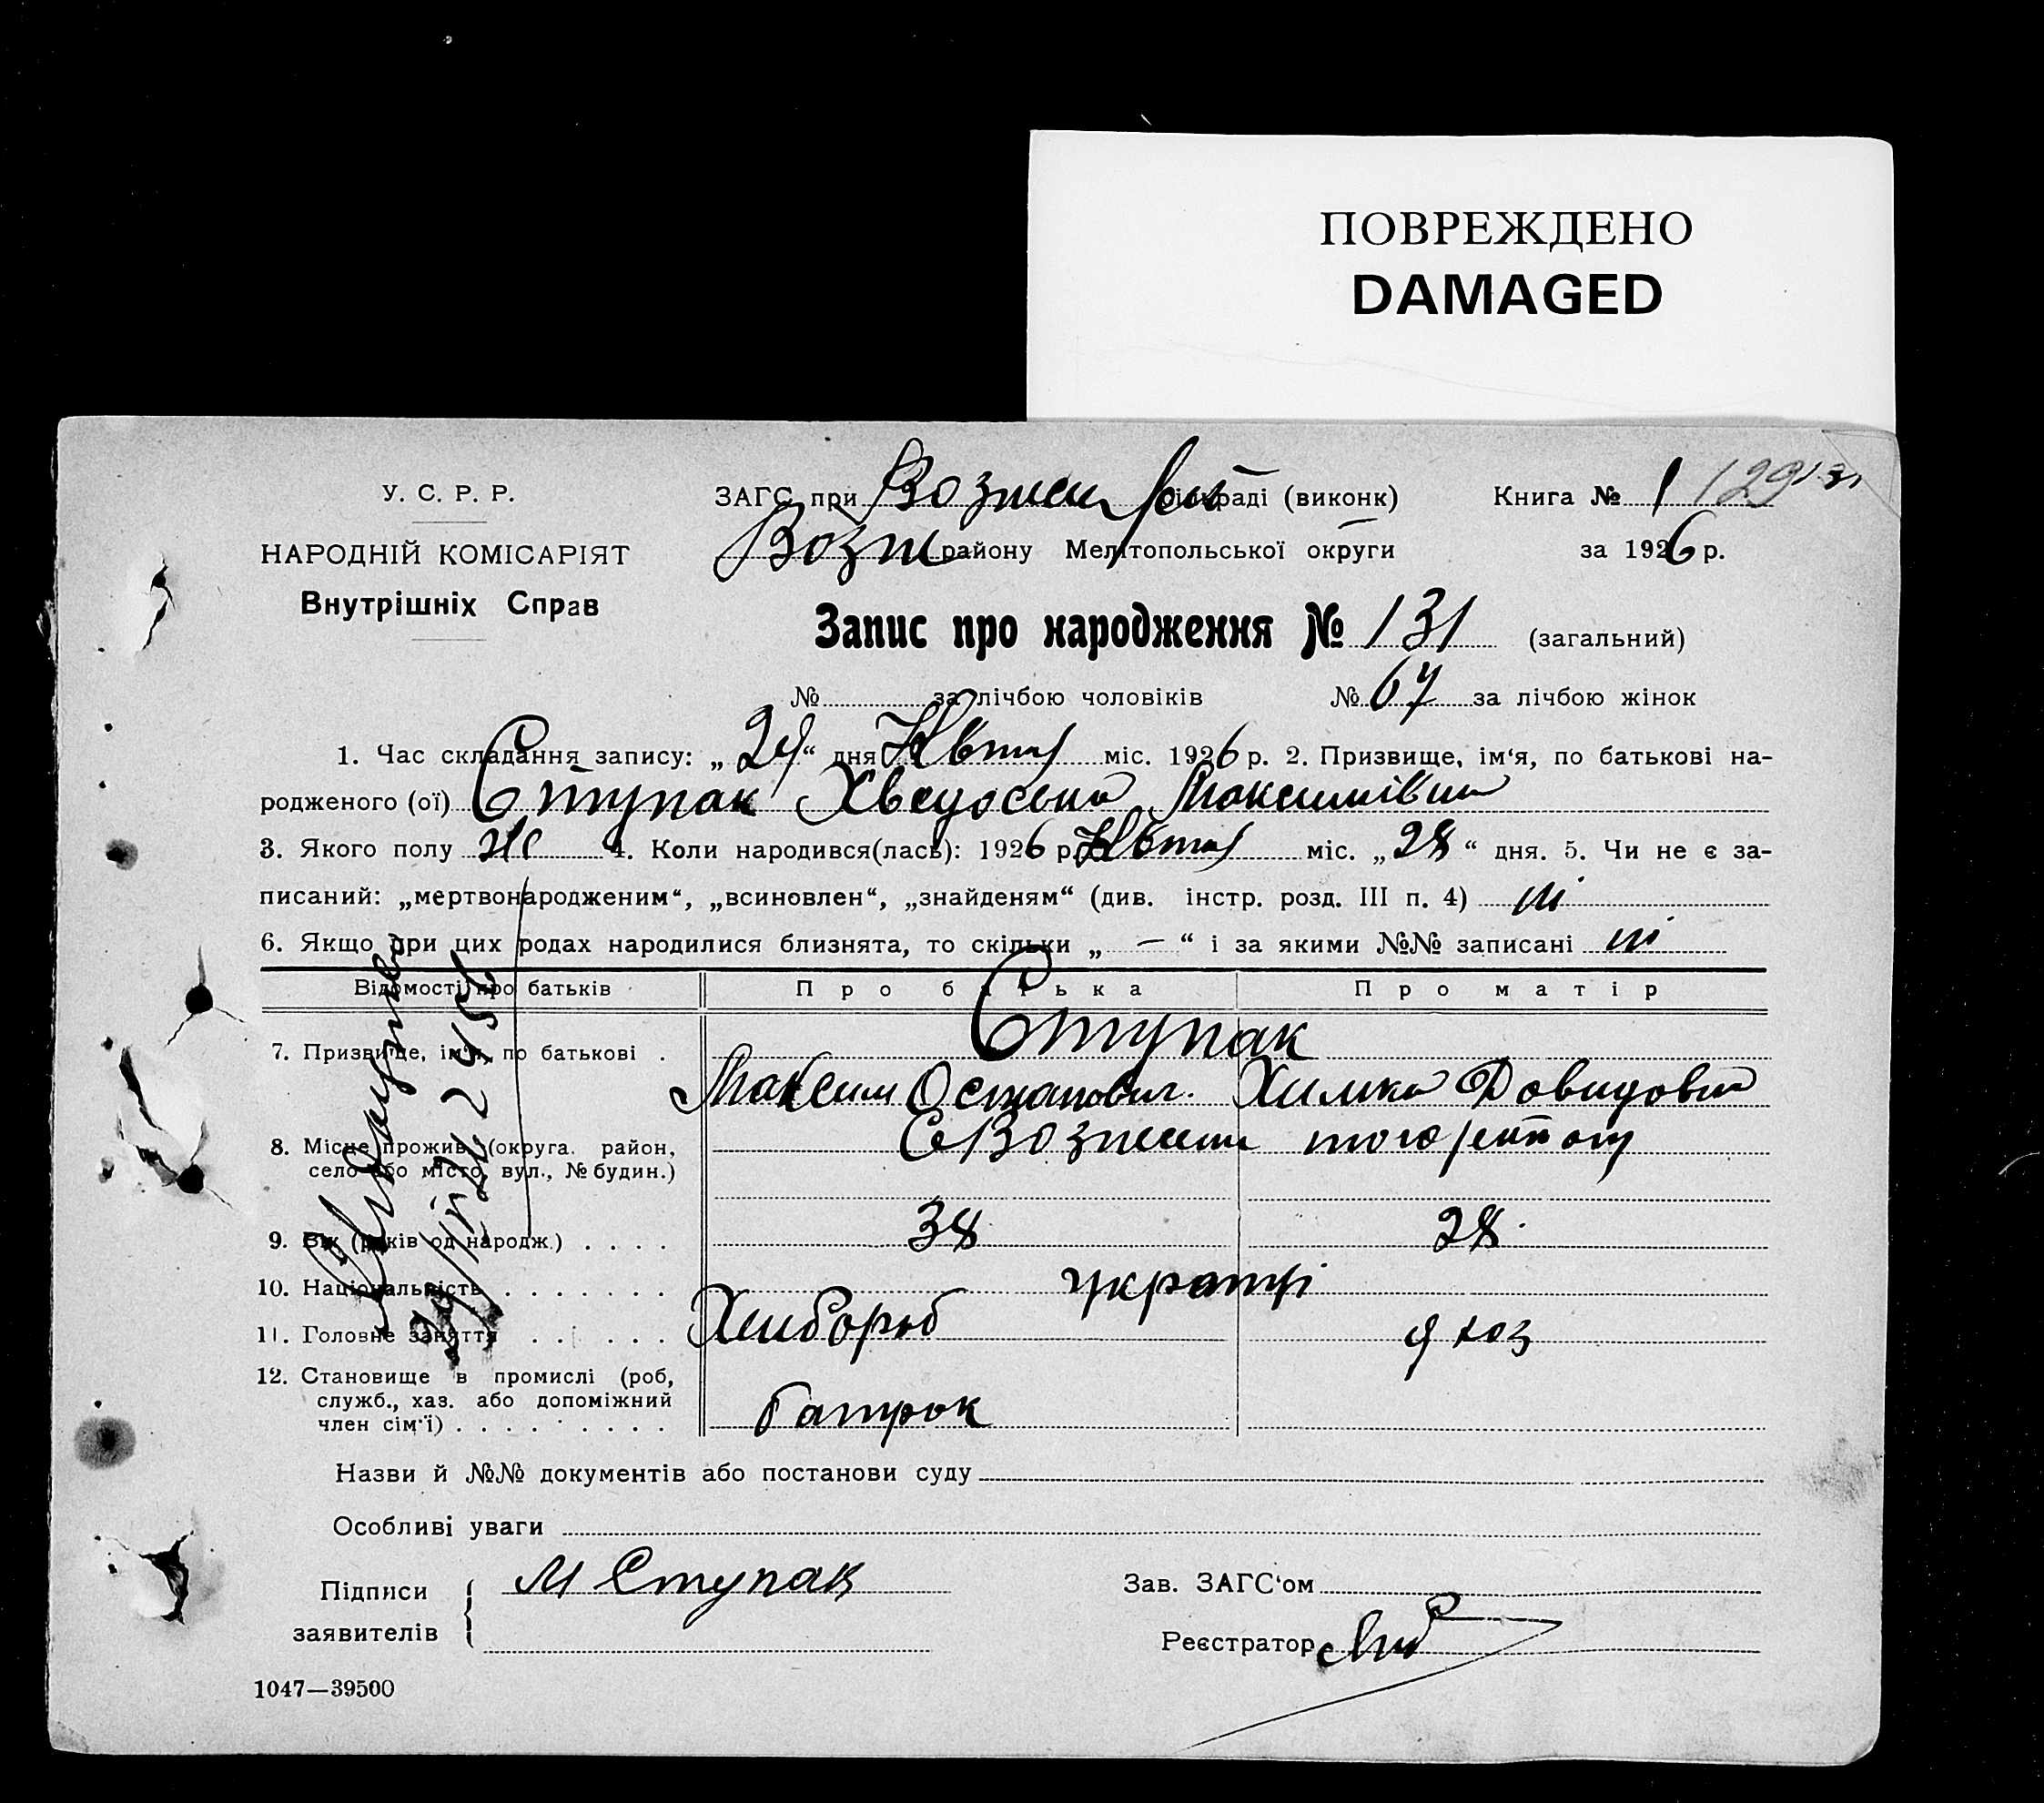 ПОВРЕЖДЕНО
DAMAGED
У. С. Р. Р.
НАРОДНІЙ КОМІСАРІЯТ
Внутрішніх Справ
ЗАГС при Вознесен рай сільраді (виконк) Книга № 1 129
Возн району Мелітопольської округи за 1926 р.
Запис про народження № 131 (загальний)
№ за лічбою чоловіків № 67 за лічбою жінок
1. Час складання запису: „29“ дня Квітня міс. 1926 р. 2. Призвище, ім‘я, по батькові на-
родженого (ої) Ступак Хведосена Максимівна
3. Якого полу Жі 4. Коли народився(лась): 1926 р. Квітня міс. „28“ дня. 5. Чи не є за-
писаний: „мертвонародженим“, „всиновлен“, „знайденям“ (див. інстр. розд. III п. 4) ні
6. Якщо при цих родах народилися близнята, то скільки „ — “ і за якими №№ записані ні
Відомості про батьків Про батька Про матір
7. Призвище, ім‘я, по батькові . Ступак
Максим Остапович. Химка Довидовна
8. Місце прожив. (округа, район, С Вознесен того району
село або місто, вул., № будин.)
9. Вік (років од народж.) . . . . 38 28
10. Національність . . . . . . . українці
11. Головне заняття . . . . . Хлібороб д хоз
12. Становище в промислі (роб,
служб., хаз. або допоміжний
член сім‘ї) . . . . . . . . батрак
Назви й №№ документів або постанови суду
Особливі уваги
Підписи М Ступак Зав. ЗАГС‘ом
заявителів Реєстратор
1047—39500